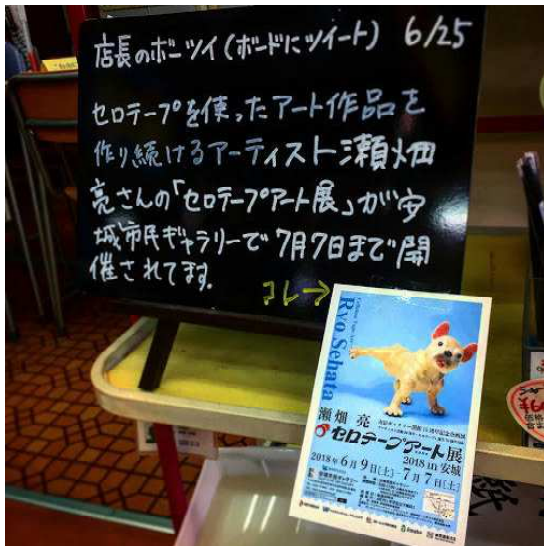 店長のボーツイ(ボードにツイート) 6/25
セロテープを使ったアート作品を
作り続けるアーティスト瀬畑
亮さんの「セロテープアート展」が安
城市民ギャラリーで7月7日まで開
催されてます.
コレ→
Ryo Sehata
瀬畑 亮
セロテープアート展
2018 in 安城
2018年6月9日(土)-7月7日(土)